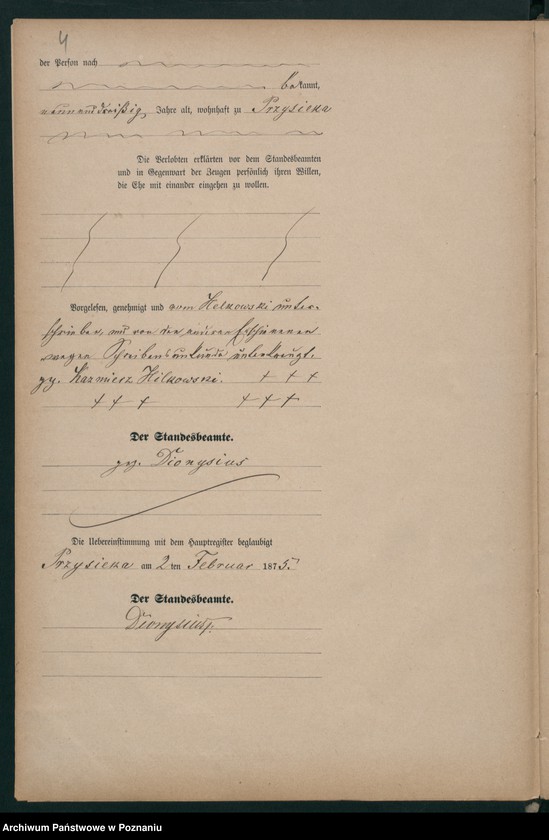 4
der Person nach
bekannt,
neununddreißig Jahre alt, wohnhaft zu Przysieka
Die Verlobten erklärten vor dem Standesbeamten
und in Gegenwart der Zeugen persönlich ihren Willen,
die Ehe mit einander eingehen zu wollen.
Vorgelesen, genehmigt und vom Helkowski unter-
schrieben, und von den Erschienenen
wegen Schreibensunkunde unterkreuzt.
gez. Kazmierz Hilkowski. + + +
+ + + + + +
Der Standesbeamte.
gez. Dionysius
Die Uebereinstimmung mit dem Hauptregister beglaubigt
Przysieka am 2 ten Februar 1875.
Der Standesbeamte.
Dionysius
Archiwum Państwowe w Poznaniu